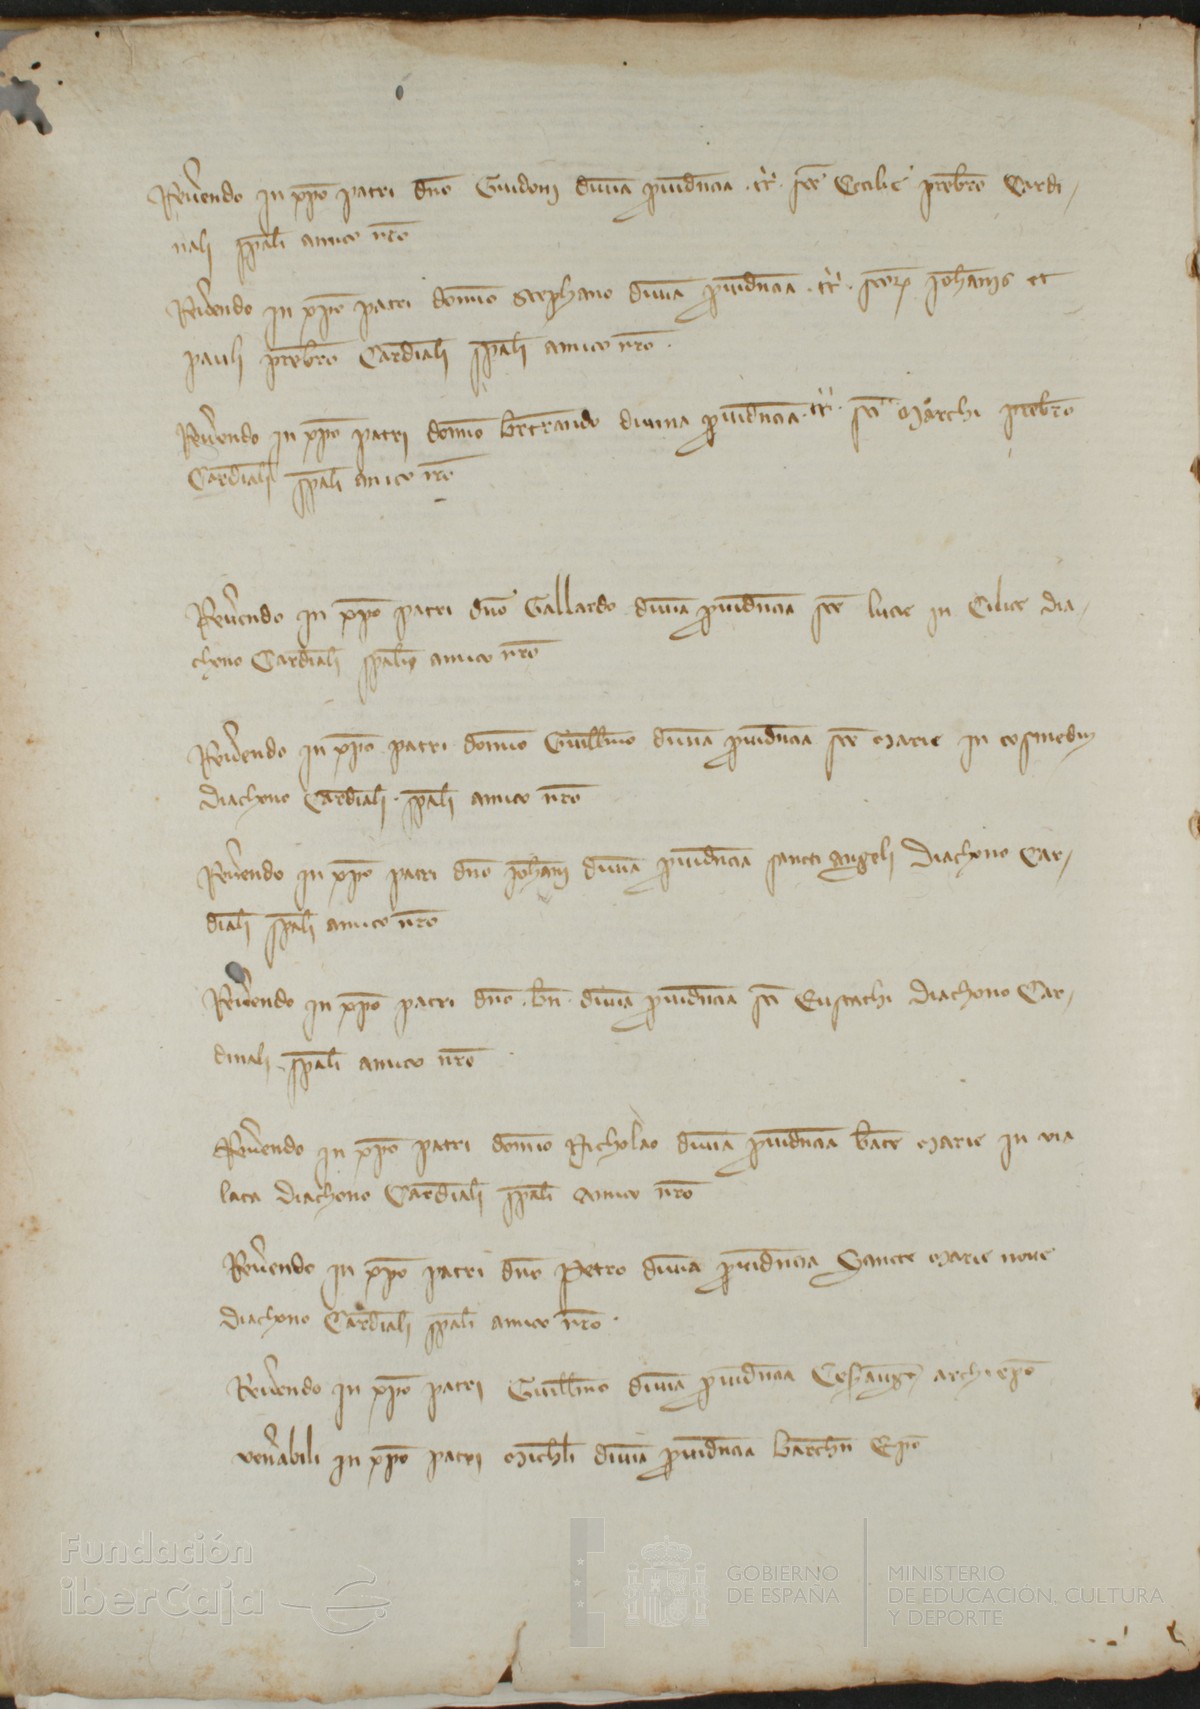 Reuerendo in xpo patri dno Guidoni diuina prouidencia .tt. sce Cecilie presbro Cardi-
nali spali amico nro
Reuerendo in xpo patri domino Stephano diuina prouidencia .tt. scor Johanis et
pauli presbro Cardinali spali amico nro.
Reuerendo in xpo patri domino bertrando diuina prouidencia .tt. sci Marchi presbro
Cardinali spali amico nro
Reuerendo in xpo patri dno Gallardo diuina prouidencia sce lucie in Cilice dia-
chono Cardinali spali amico nro
Reuerendo in xpo patri domino Guillmo diuina prouidencia sce Marie in cosmedin
diachono Cardinali. spali amico nro
Reuerendo in xpo patri dno Johani diuina prouidencia sancti angeli diachono Car-
dinali spali amico nro
Reuerendo in xpo patri dno .bn. diuina prouidencia sci Eustachi diachono Car-
dinali. spali amico nro
Reuerendo in xpo patri domino Nicholao diuina prouidencia bate Marie in via
lata diachono Cardinali spali amico nro
Reuerendo in xpo patri dno Petro diuina prouidencia Sancte Marie noue
diachono Cardinali spali amico nro.
Reuerendo in xpo patri Guillmo diuina prouidencia Cesaraug archiepo
venerabili in xpo patri Michli diuina prouidencia barchn Epo
Fundación
iberCaja
GOBIERNO
DE ESPAÑA
MINISTERIO
DE EDUCACIÓN, CULTURA
Y DEPORTE